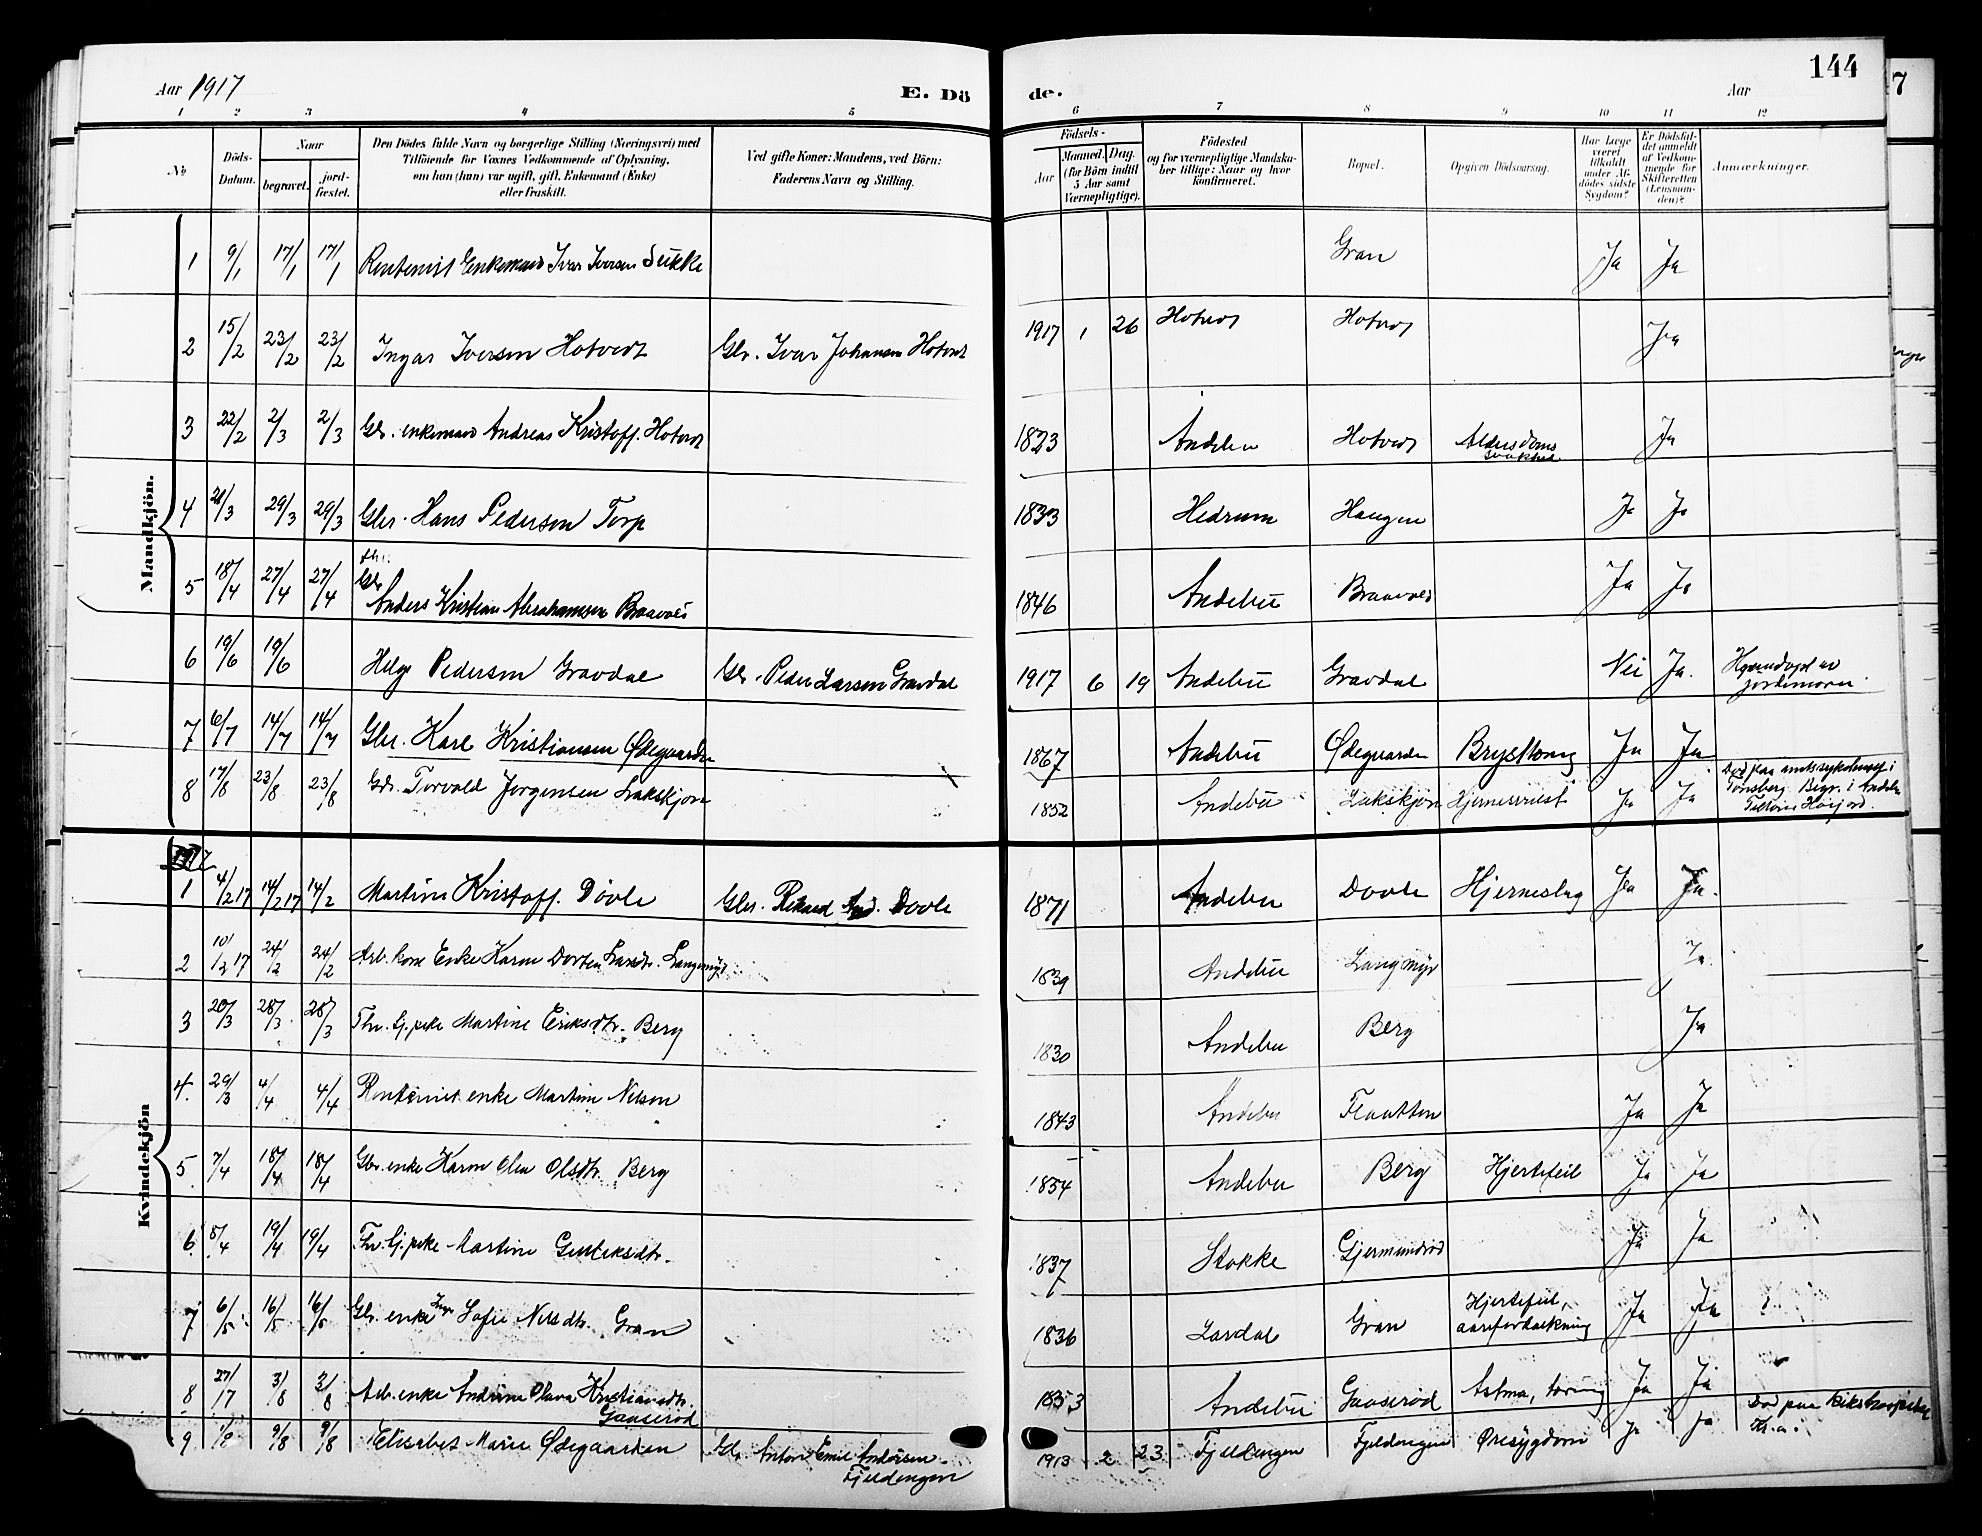 Aar 1917
E. Dö de.
Aar
144
1 2 3 4 5 6 7 8 9 10 11 12
№
Döds-Datum.
Naar
begravet.
jord-fæstet.
Den Dödes fulde Navn og borgerlige Stilling (Næringsvei) med
Tilföiende for Voxnes Vedkommende af Oplysning,
om han (hun) var ugift, gift, Enkemand (Enke)
eller fraskilt.
Ved gifte Koner: Mandens, ved Börn:
Faderens Navn og Stilling.
Födsels-
Aar
Maaned. Dag.
(for Börn indtil
5 Aar samt
Værnepligtige).
Födested
og for værnepligtige Mandska-
ber tillige: Naar og hvor
konfirmeret.
Bopæl.
Opgiven Dödsaarsag.
Har Læge
været
tilkaldt
under Af-
dödes sidste
Sygdom?
Er Dödsfal-
det anmeldt
af Vedkom-
mende for
Skifteretten
(Lensman-
den)?
Anmærkninger.
Mandkjön.
1 9/1 17/1 17/1 Rentenist Enkemand Ivar Iversen Sukke Gran Ja Ja
2 15/2 23/2 23/2 Ingar Iversen Hotvedt Gbr. Ivar Johansen Hotvedt 1917 1 26 Hotvedt Hotvedt Ja
3 22/2 2/3 2/3 Gbr. enkemand Andreas Kristoff. Hotvedt 1823 Andebu Hotvedt Alderdoms Ja
4 21/3 29/3 29/3 Gbr. Hans Pederson Torp 1833 Hedrum Haugen Ja Ja
5 18/4 27/4 27/4 fhv. Gbr
Anders Kristian Abrahamsen Braavold 1846 Andebu Braavold Ja Ja
6 19/6 19/6 Helge Pedersen Gravdal Gbr. Peder Larsen Gravdal 1917 6 19 Andebu Gravdal Nei Ja. Hjemdøpt av
jordmoren.
7 6/7 14/7 14/7 Gbr. Karl Kristiansen Ødegaarden 1867 Andebu Ødegaarden Ja Ja
8 17/8 23/8 23/8 Gbr. Torvald Jørgensen Lakskjøn 1852 Andebu Lakskjøn Ja Ja Død paa amtssykehuset i
Tønsberg. Begr. i Andebu
Høijord.
Kvindekjön
1917
1 4/2 17 14/2 17 14/2 Martine Kristoff. Døvle Gbr. Rikard And. Døvle 1871 Andebu Døvle Hjerneslag Ja Ja.
2 10/2 17 24/2 24/2 Arb. kone Enke Karen Dorten Larsdtr. Langmyr 1839 Andebu Langmyr Ja
3 20/3 28/3 28/3 Fhv. tj. pike Martine Eriksdtr. Berg 1830 Andebu Berg Ja
4. 29/3 4/4 4/4 Rentenist enke Martine Nilson 1843 Andebu Flaatten Ja Ja
5 7/4 18/4 18/4 Gbr. enke Karen Olea Olsdtr. Berg 1854 Andebu Berg Hjertefeil Ja Ja
6 8/4 19/4 19/4 Fhv. tj. pike Martine Gulleksdtr. 1837 Stokke Gjermundrød Ja Ja
7 6/5 16/5 16/5 Gbr. enke Inge Sofie Nilsdtr. Gran 1836 Lardal Gran Hjertefeil,
aareforkalkning Ja Ja
8 27/7 3/8 3/8 Arb. enke Andrine Olava Kristiansdtr.
Gaaserød 1853 Andebu Gaaserød Astma, tæring Ja Ja
9 1/8 9/8 9/8 Elisabet Marie Ødegaarden Gbr. Anton Emil Andersen
Fjeldengen 1913 2 23 Fjeldengen Fjeldengen Øresygdom Ja ja Død paa Rikshospitalet
Kr.a.